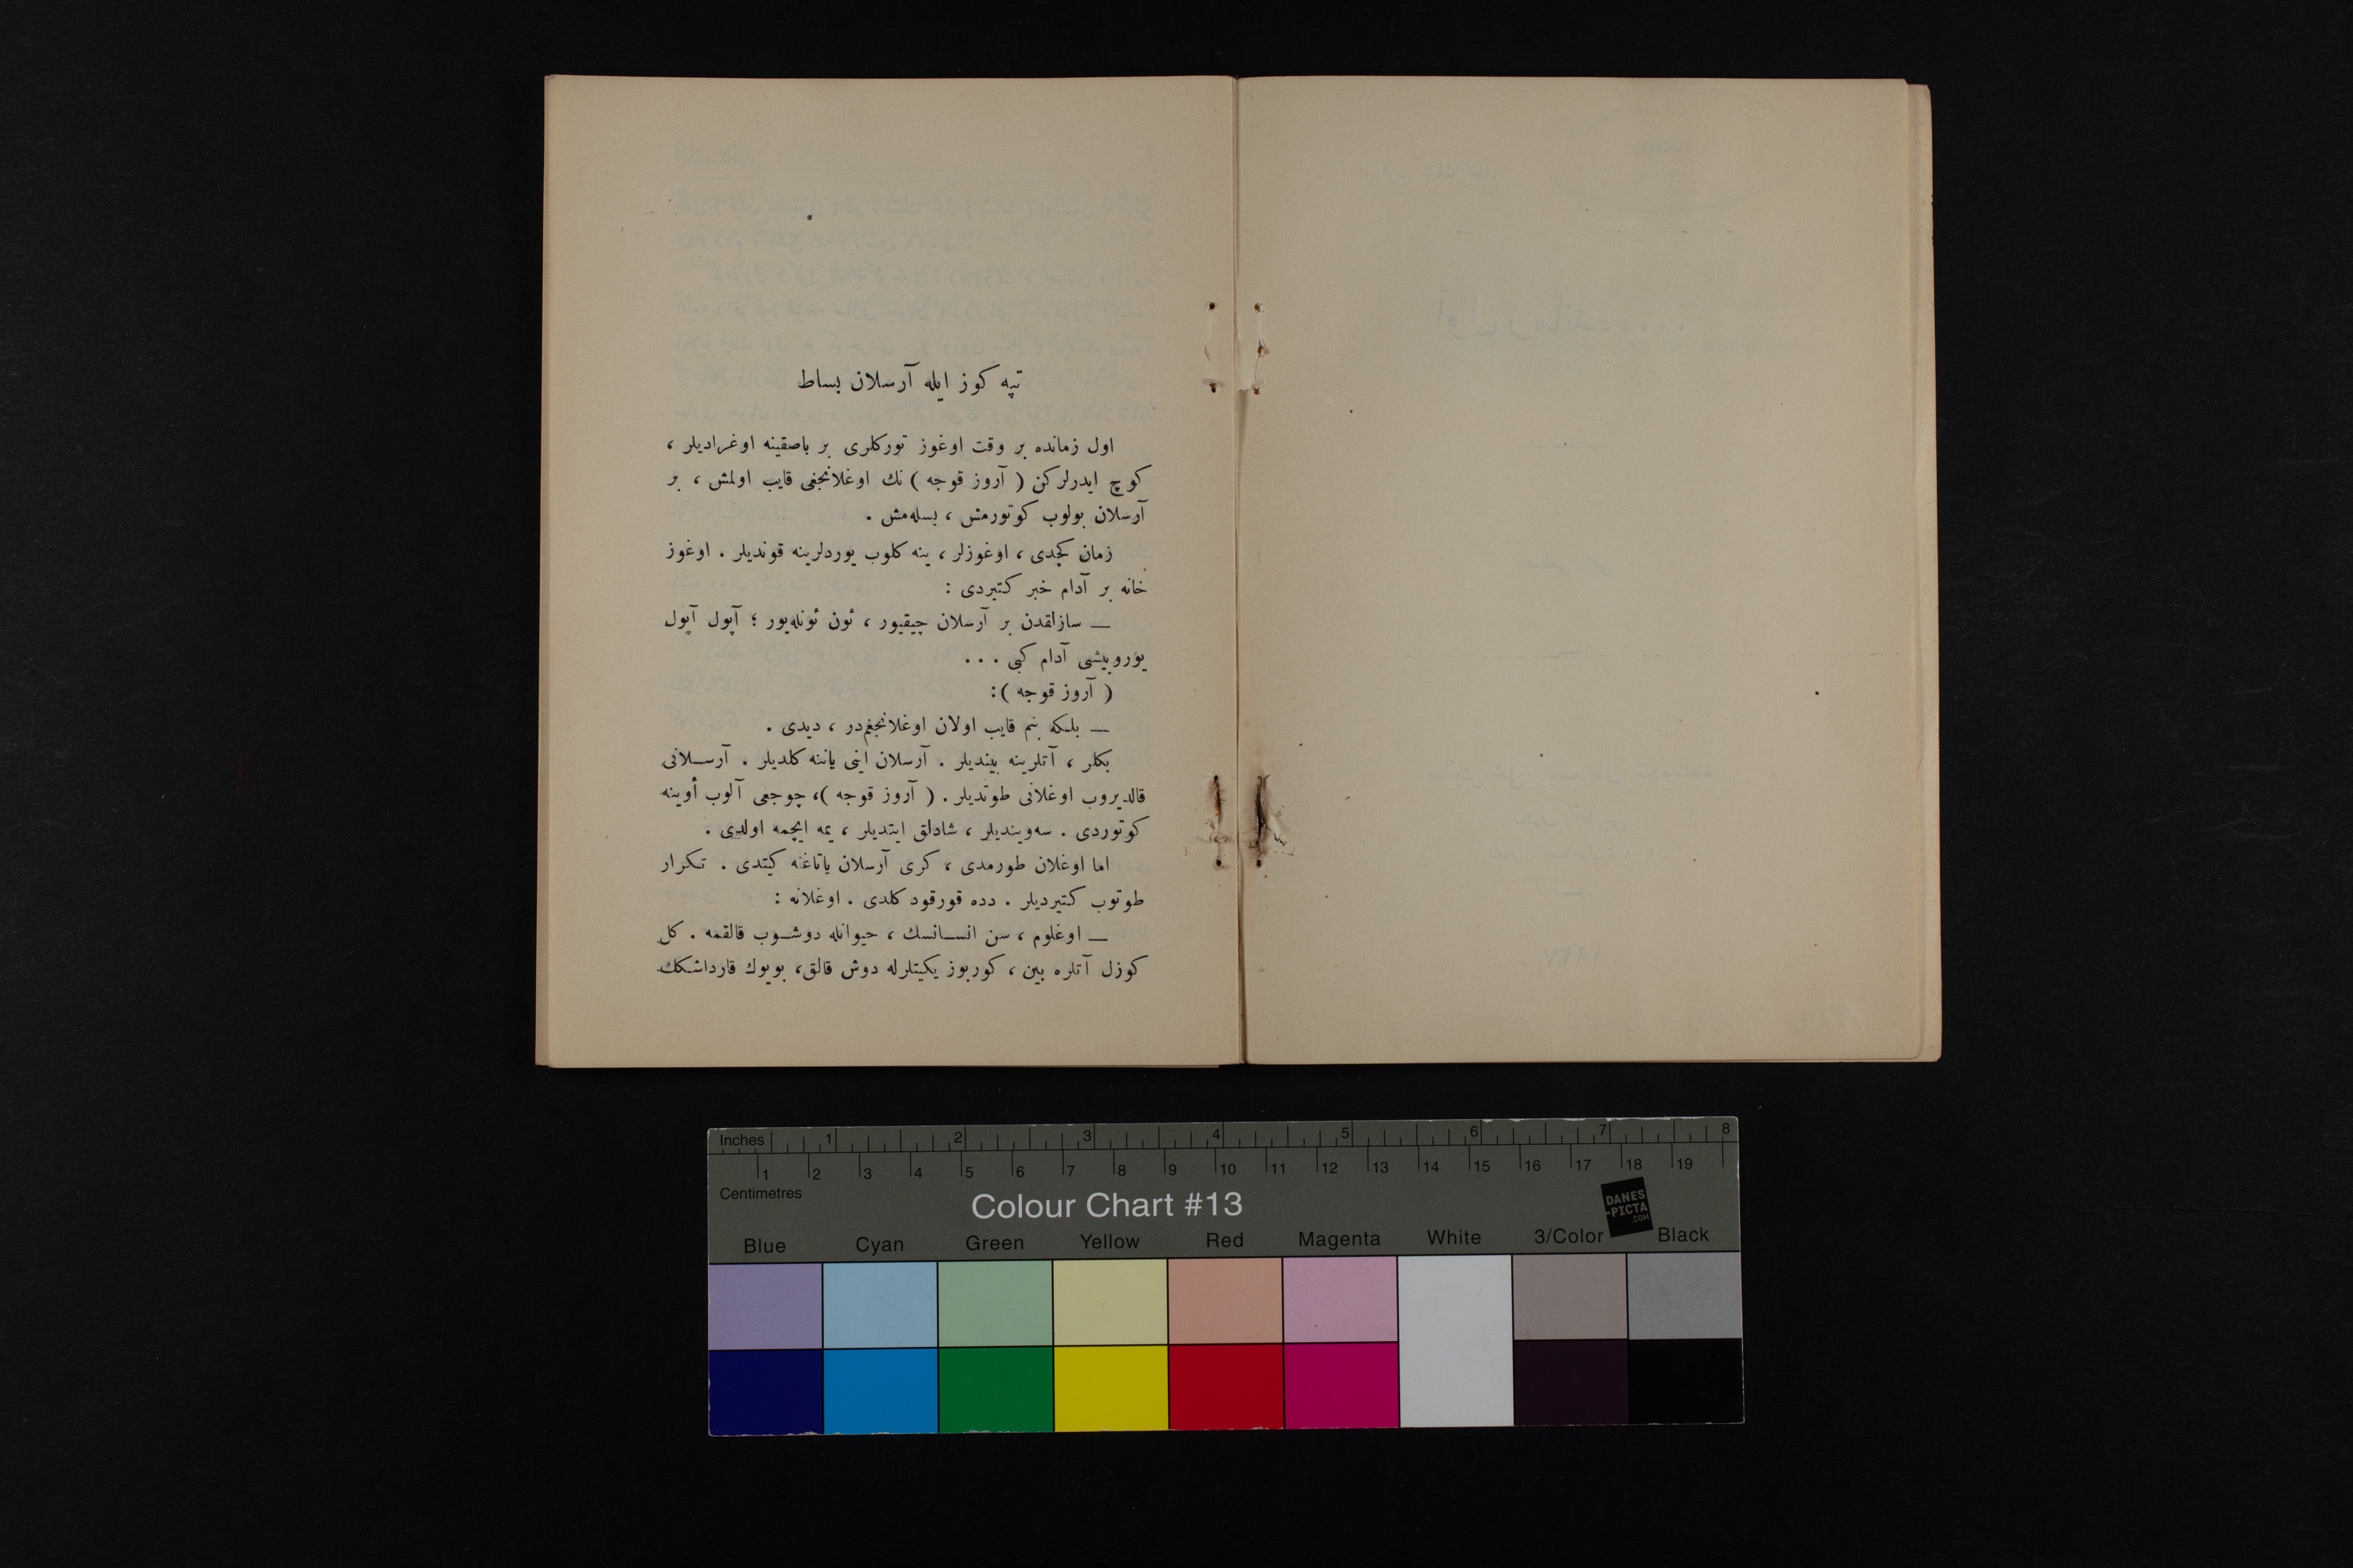 تپه كوز ايله آرسلان بساط
اول زمانده بر وقت اوغوز توركلرى بر باصقينه اوغراديلر ،
كوچ ايدرلركن ( آروز قوجه ) نك اوغلانجغى قايب اولمش ، بر
آرسلان بولوب كوتورمش ، بسله‌مش .
زمان كچدى ، اوغوزلر ، ينه كلوب يوردلرينه قونديلر . اوغوز
خانه بر آدام خبر كتيردى :
— سازلقدن بر آرسلان چيقيور ، ئون ئونله‌يور ؛ آپول آپول
يورويشى آدام كبى ...
( آروز قوجه ):
— بلكه بنم قايب اولان اوغلانجغم‌در ، ديدى .
بكلر ، آتلرينه بينديلر . آرسلان اينى ياننه كلديلر . آرسلانى
قالديروب اوغلانى طوتديلر . ( آروز قوجه )، چوجغى آلوب أوينه
كوتوردى . سه‌وينديلر ، شادلق ايتديلر ، يمه ايچمه اولدى .
اما اوغلان طورمدى ، كرى آرسلان ياتاغنه كيتدى . تكرار
طوتوب كتيرديلر . دده قورقود كلدى . اوغلانه :
— اوغلوم ، سن انسانسك ، حيوانله دوشوب قالقمه . كل
كوزل آتلره بين ، كوربوز يكيتلرله دوش قالق، بويوك قارداشكك
Inches 1 2 3 4 5 6 7 8
1 2 3 4 5 6 7 8 9 10 11 12 13 14 15 16 17 18 19
Centimetres
Colour Chart #13
DANES
-PICTA
.COM
Blue Cyan Green Yellow Red Magenta White 3/Color Black